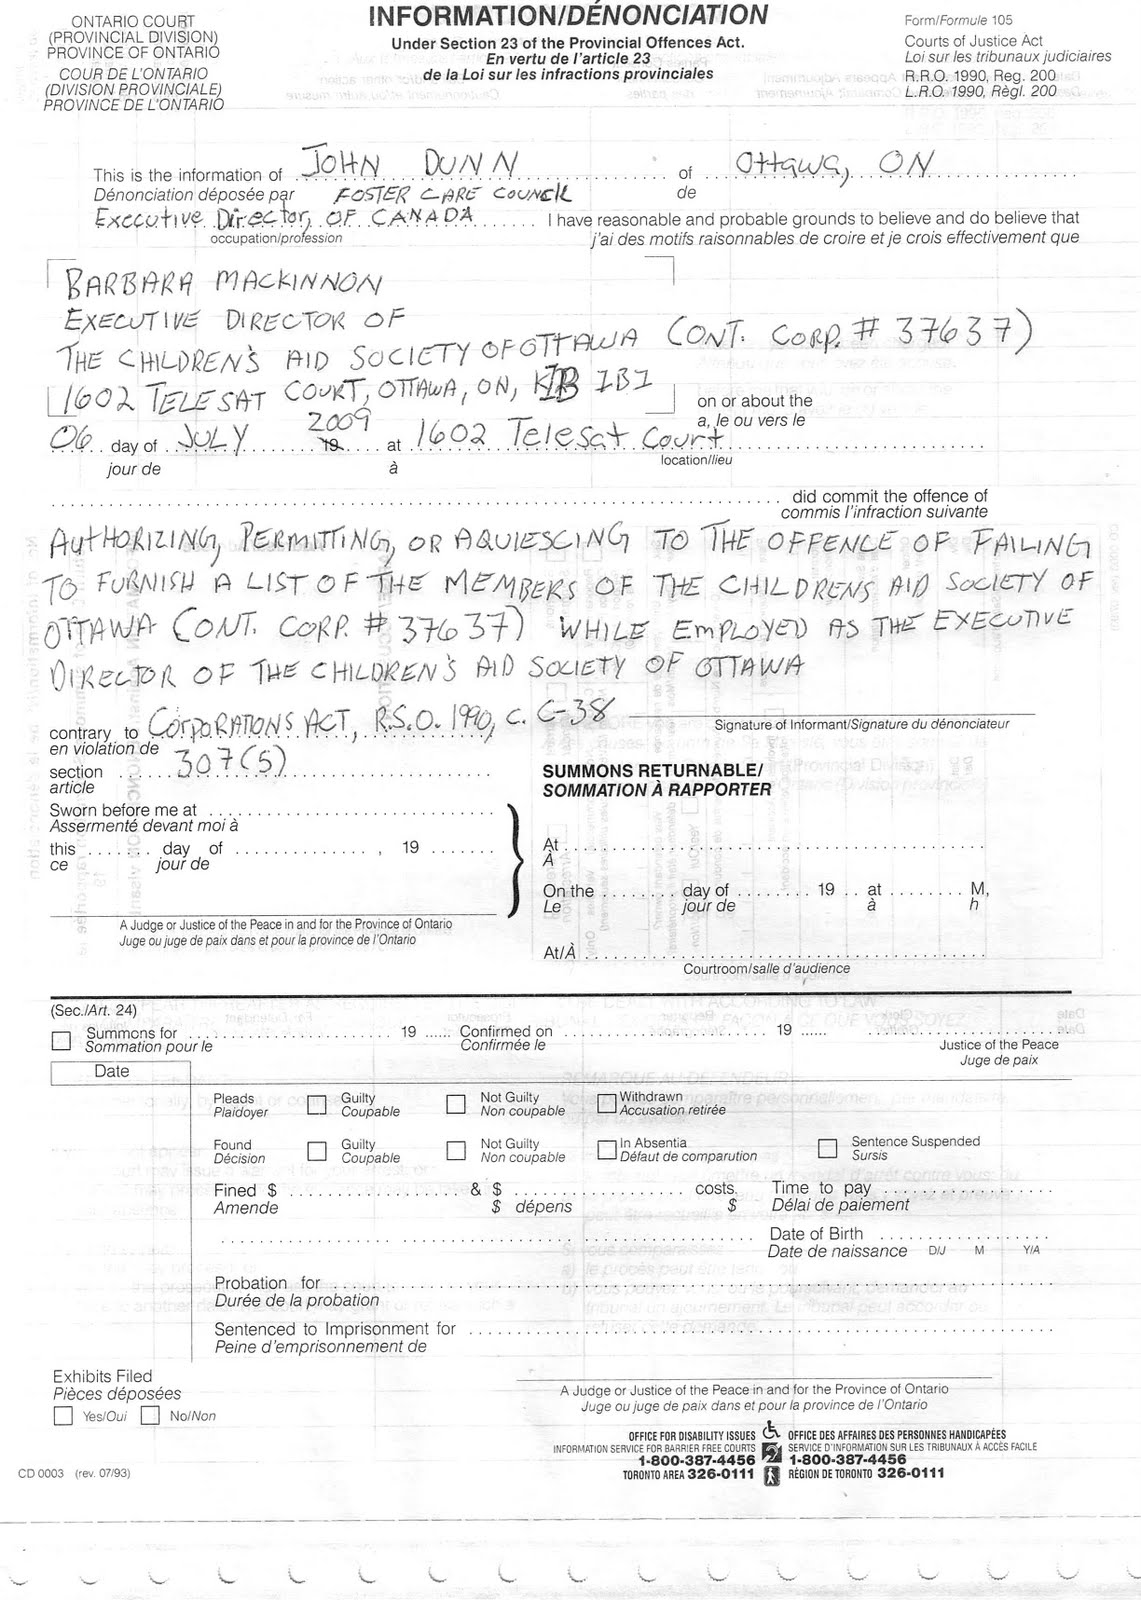 ONTARIO COURT
(PROVINCIAL DIVISION)
PROVINCE OF ONTARIO
COUR DE L'ONTARIO
(DIVISION PROVINCIALE)
PROVINCE DE L'ONTARIO
INFORMATION/DÉNONCIATION
Under Section 23 of the Provincial Offences Act.
En vertu de l'article 23
de la Loi sur les infractions provinciales
Form/Formule 105
Courts of Justice Act
Loi sur les tribunaux judiciaires
R.R.O. 1990, Reg. 200
L.R.O. 1990, Règl. 200
This is the information of JOHN DUNN of Ottawa, ON
Dénonciation déposée par FOSTER CARE COUNCIL de
Executive Director, OF CANADA I have reasonable and probable grounds to believe and do believe that
occupation/profession j'ai des motifs raisonnables de croire et je crois effectivement que
BARBARA MACKINNON
EXECUTIVE DIRECTOR OF
THE CHILDREN'S AID SOCIETY OF OTTAWA (ONT. CORP. # 37637)
1602 TELESAT COURT, OTTAWA, ON, K1B 1B1
on or about the
a, le ou vers le
06 day of JULY 19 2009 at 1602 Telesat Court
jour de à location/lieu
did commit the offence of
commis l'infraction suivante
AUTHORIZING, PERMITTING, OR AQUIESCING TO THE OFFENCE OF FAILING
TO FURNISH A LIST OF THE MEMBERS OF THE CHILDRENS AID SOCIETY OF
OTTAWA (ONT. CORP. # 37637) WHILE EMPLOYED AS THE EXECUTIVE
DIRECTOR OF THE CHILDREN'S AID SOCIETY OF OTTAWA
contrary to CORPORATIONS ACT, R.S.O. 1990, C. C-38
en violation de
Signature of Informant/Signature du dénonciateur
section 307(5)
article
Sworn before me at
Assermenté devant moi à
this day of , 19
ce jour de
A Judge or Justice of the Peace in and for the Province of Ontario
Juge ou juge de paix dans et pour la province de l'Ontario
SUMMONS RETURNABLE/
SOMMATION À RAPPORTER
At
À
On the day of 19 at M,
Le jour de à h
At/À
Courtroom/salle d'audience
(Sec./Art. 24)
Summons for 19 Confirmed on 19
Sommation pour le Confirmée le
Justice of the Peace
Juge de paix
Date
Pleads Guilty Not Guilty Withdrawn
Plaidoyer Coupable Non coupable Accusation retirée
Found Guilty Not Guilty In Absentia Sentence Suspended
Décision Coupable Non coupable Défaut de comparution Sursis
Fined $ & $ costs, Time to pay
Amende $ dépens $ Délai de paiement
Date of Birth
Date de naissance D/J M Y/A
Probation for
Durée de la probation
Sentenced to Imprisonment for
Peine d'emprisonnement de
Exhibits Filed
Pièces déposées
Yes/Oui No/Non
A Judge or Justice of the Peace in and for the Province of Ontario
Juge ou juge de paix dans et pour la province de l'Ontario
OFFICE FOR DISABILITY ISSUES OFFICE DES AFFAIRES DES PERSONNES HANDICAPÉES
INFORMATION SERVICE FOR BARRIER FREE COURTS SERVICE D'INFORMATION SUR LES TRIBUNAUX À ACCÈS FACILE
1-800-387-4456 1-800-387-4456
TORONTO AREA 326-0111 RÉGION DE TORONTO 326-0111
CD 0003 (rev. 07/93)